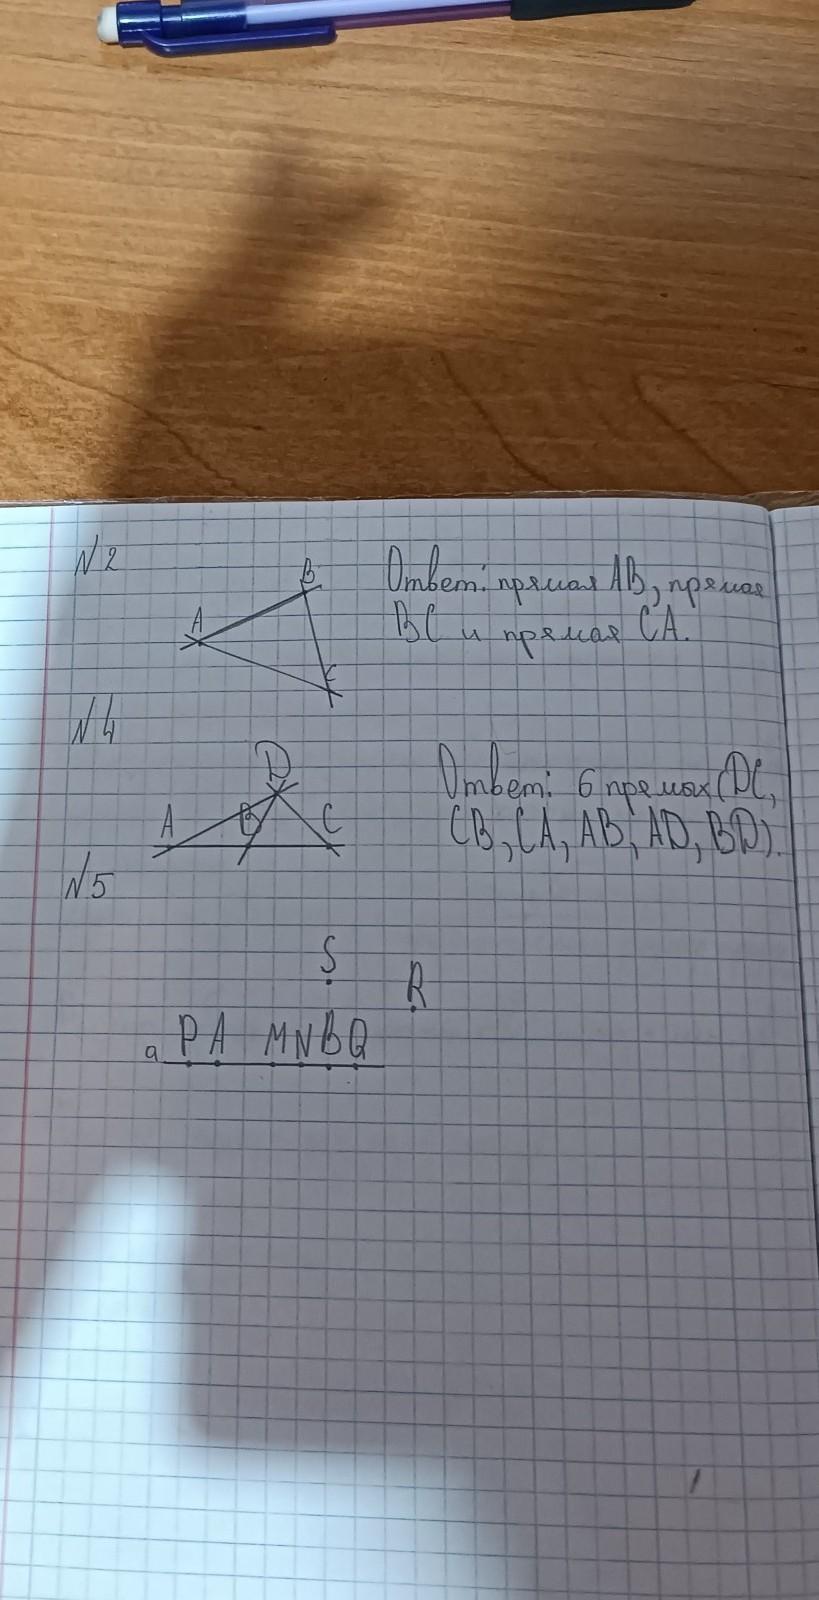 N2
B
A
C
Ответ: прямая AB, прямая
BC и прямая CA.
N4
D
A B C
Ответ: 6 прямых (DC,
CB, CA, AB, AD, BD).
N5
S
R
a P A M N B Q